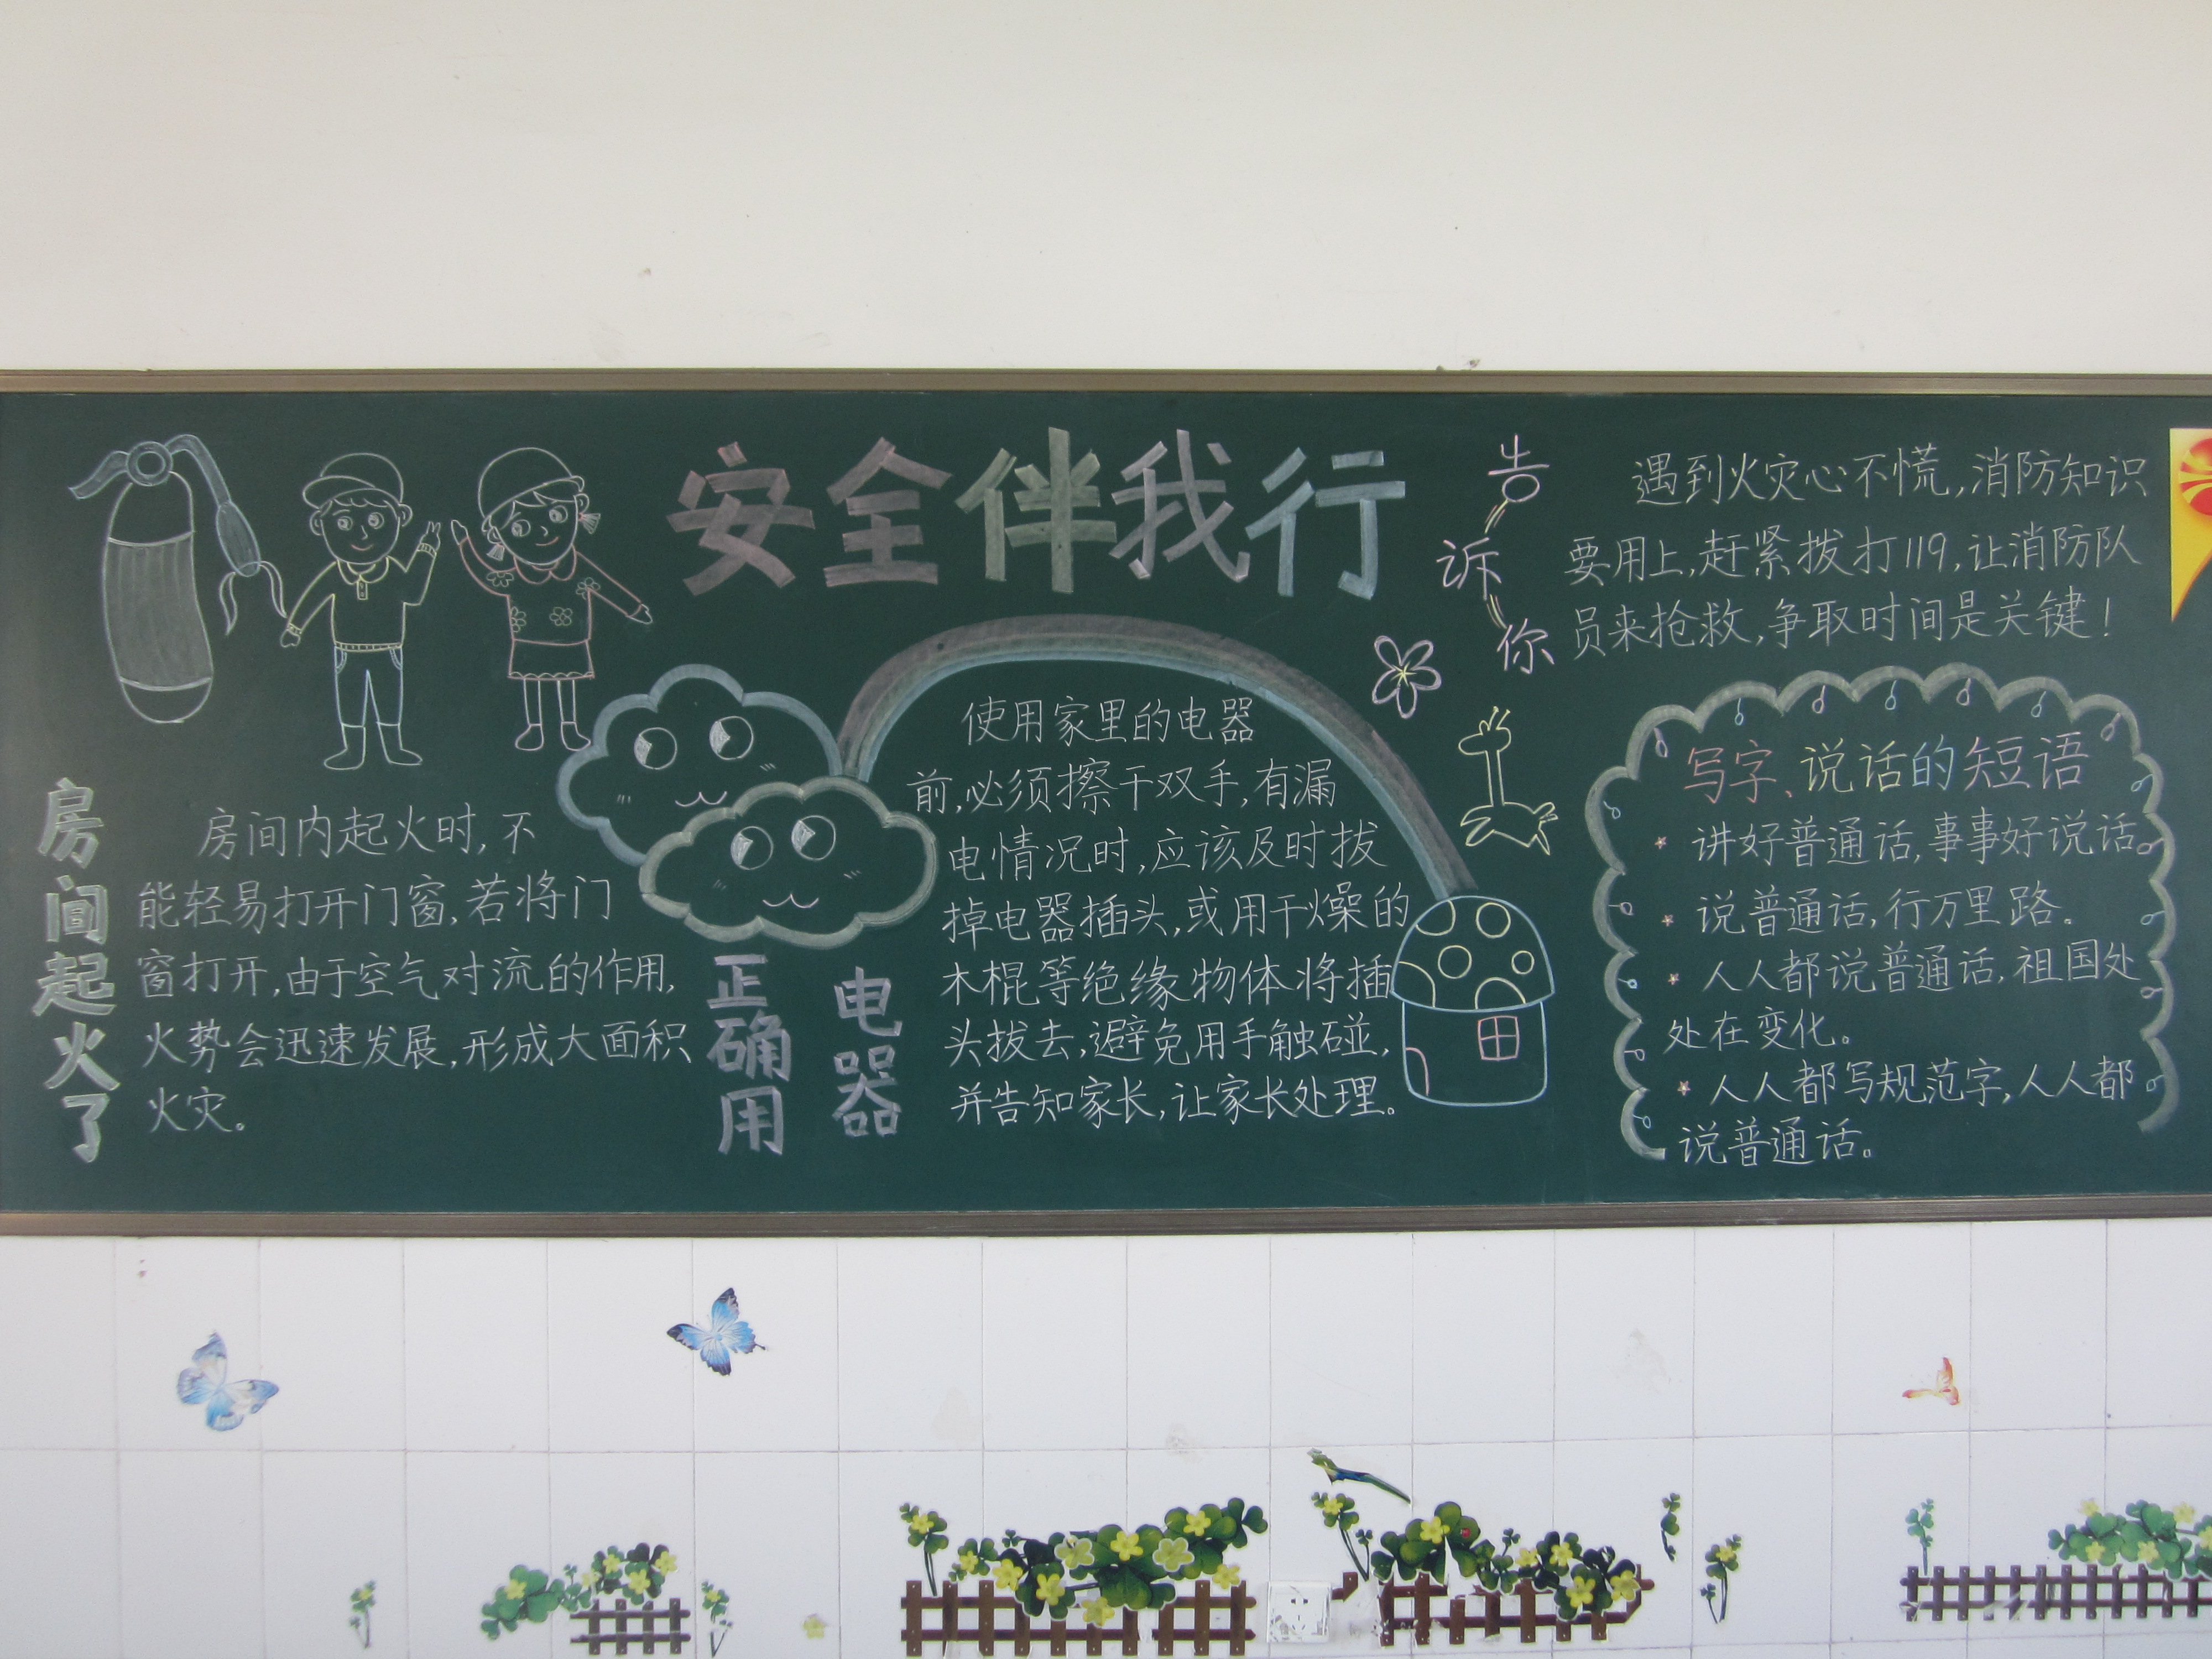 安全伴我行
房间起火了
房间内起火时,不
能轻易打开门窗,若将门
窗打开,由于空气对流的作用,
火势会迅速发展,形成大面积
火灾。
正确用
电器
使用家里的电器
前,必须擦干双手,有漏
电情况时,应该及时拔
掉电器插头,或用干燥的
木棍等绝缘物体将插
头拔去,避免用手触碰,
并告知家长,让家长处理。
告
诉
你
遇到火灾心不慌,消防知识
要用上,赶紧拨打119,让消防队
员来抢救,争取时间是关键!
写字、说话的短语
讲好普通话,事事好说话。
说普通话,行万里路。
人人都说普通话,祖国处
处在变化。
人人都写规范字,人人都
说普通话。